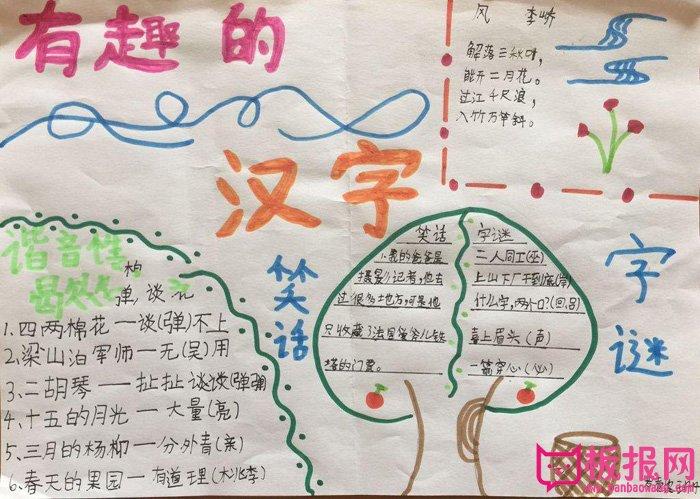 有趣的
汉字
风 李峤
解落三秋叶,
能开二月花。
过江千尺浪,
入竹万竿斜。
谐音性
弹,谈
1.四两棉花一谈(弹)不上
2.梁山泊军师一无(吴)用
3.二胡琴一扯扯谈谈(弹弹)
4.十五的月光一大量(亮)
5.三月的杨柳一分外青(亲)
6.春天的果园一有道理(桃李)
笑话
笑话
我的爸爸是
摄影记者,他去
过很多地方,可是他
只收藏了法国埃菲尔铁
塔的门票。
字谜
二人同工(坐)
上山下厂干到底(岸)
什么字,两个口?(回、吕)
喜上眉头(声)
一箭穿心(必)
字谜
板报网
www.banbaowang.com